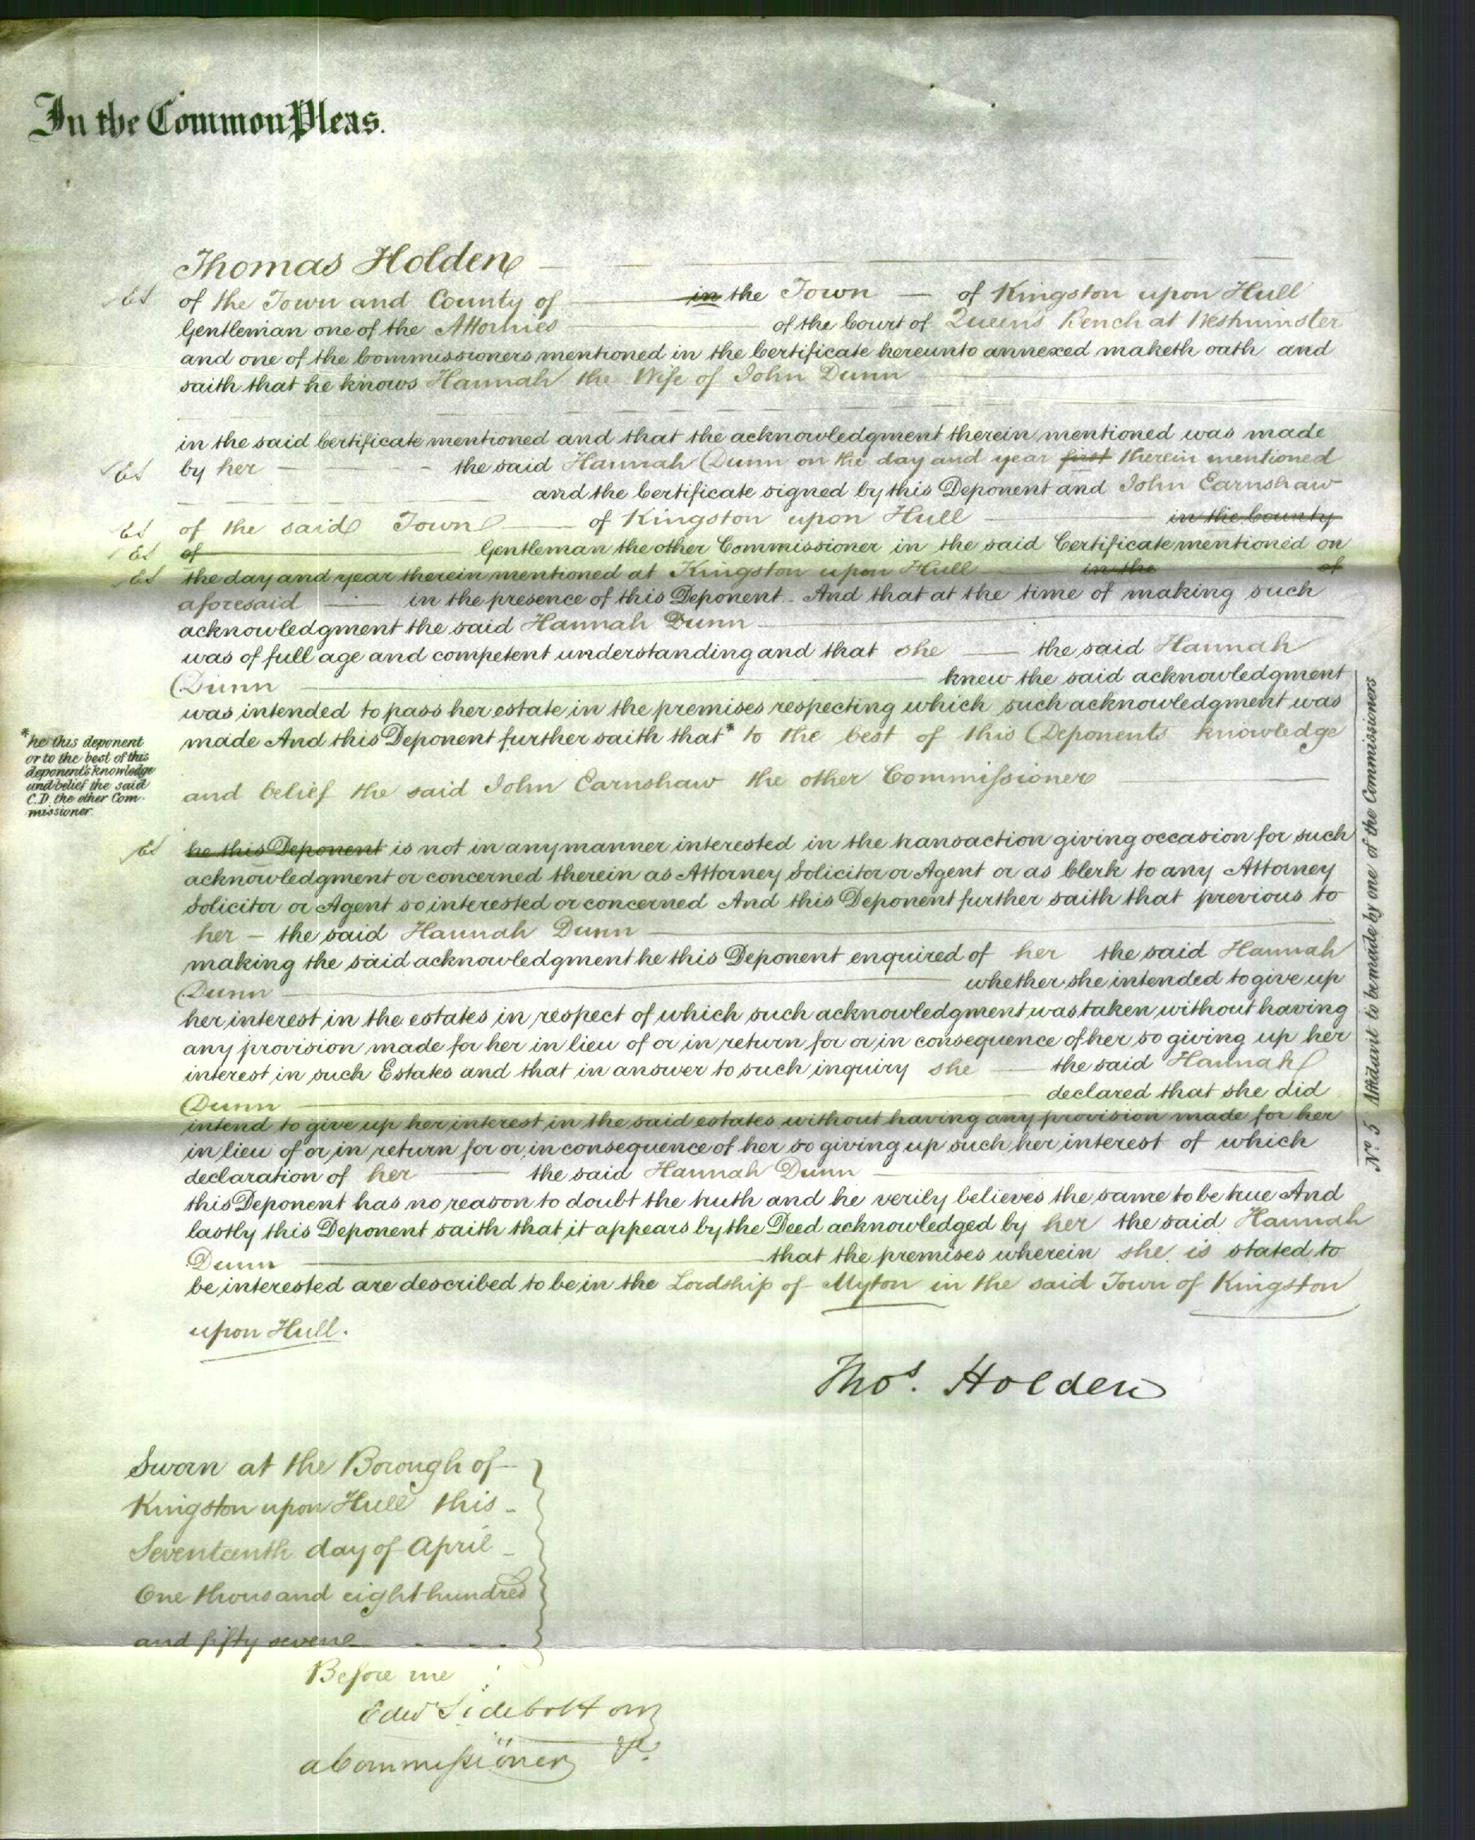 In the Common Pleas.
Thomas Holden
ES of the Town and County of in the Town of Kingston upon Hull
Gentleman one of the Attornies of the Court of Queens Bench at Westminster
and one of the Commissioners mentioned in the Certificate hereunto annexed maketh oath and
saith that he knows Hannah the Wife of John Dunn
in the said Certificate mentioned and that the acknowledgment therein mentioned was made
ES by her the said Hannah Dunn on the day and year first therein mentioned
and the Certificate signed by this Deponent and John Earnshaw
ES of the said Town of Kingston upon Hull in the County
ES of Gentleman the other Commissioner in the said Certificate mentioned on
ES the day and year therein mentioned at Kingston upon Hull in the of
aforesaid in the presence of this Deponent. And that at the time of making such
acknowledgment the said Hannah Dunn
was of full age and competent understanding and that she the said Hannah
Dunn knew the said acknowledgment
was intended to pass her estate in the premises respecting which such acknowledgment was
made And this Deponent further saith that* to the best of this Deponents knowledge
and belief the said John Earnshaw the other Commissioner
*he this deponent
or to the best of this
deponent's knowledge
and belief the said
C.D. the other Com-
missioner.
ES he this Deponent is not in any manner interested in the transaction giving occasion for such
acknowledgment or concerned therein as Attorney Solicitor or Agent or as Clerk to any Attorney
Solicitor or Agent so interested or concerned And this Deponent further saith that previous to
her the said Hannah Dunn
making the said acknowledgment he this Deponent enquired of her the said Hannah
Dunn whether she intended to give up
her interest in the estates in respect of which such acknowledgment was taken without having
any provision made for her in lieu of or in return for or in consequence of her so giving up her
interest in such Estates and that in answer to such inquiry she the said Hannah
Dunn declared that she did
intend to give up her interest in the said estates without having any provision made for her
in lieu of or in return for or in consequence of her so giving up such her interest of which
declaration of her the said Hannah Dunn
this Deponent has no reason to doubt the truth and he verily believes the same to be true And
lastly this Deponent saith that it appears by the Deed acknowledged by her the said Hannah
Dunn that the premises wherein she is stated to
be interested are described to be in the Lordship of Myton in the said Town of Kingston
upon Hull.
Thos. Holden
Sworn at the Borough of
Kingston upon Hull this
Seventeenth day of April
One thousand eight hundred
and fifty seven
Before me
Edwd Sidebottom
a Commissioner &c.
No. 5 Affidavit to be made by one of the Commissioners